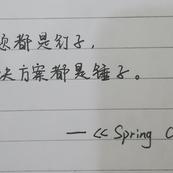 都是钉子，
决方案都是锤子。
—<< Spring